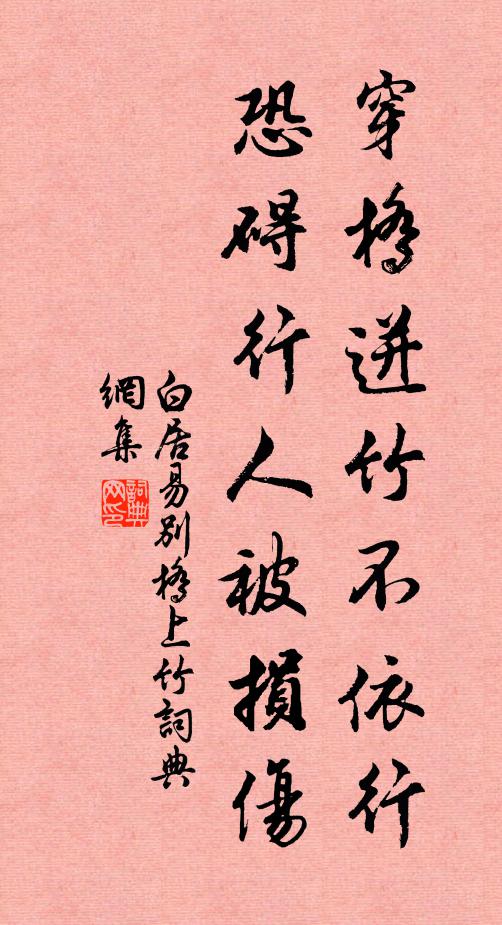 穿橋迸竹不依行
恐碍行人被損傷
白居易别橋上竹詞典
網集
詞典網印